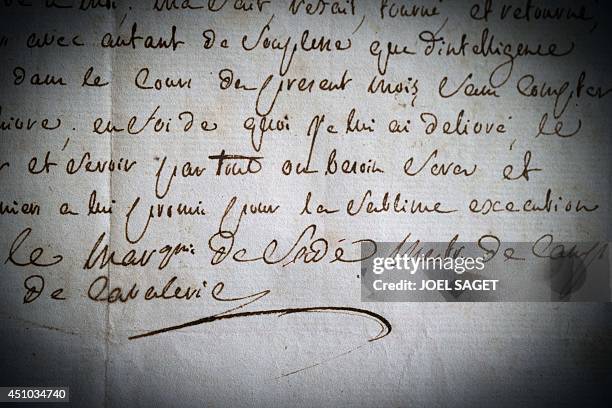 a moi. m'avait, versait, tourné, et retourné,
avec autant de souplesse que d'intelligence
dans le cour du present mois sans compter
en foi de quoi je lui ai delivré, le
et servir partout ou besoin sera et
a lui promis pour la sublime execution
le marquis de Sade mestre de camp
de Cavalerie
gettyimages
JOEL SAGET
451034740
AFP